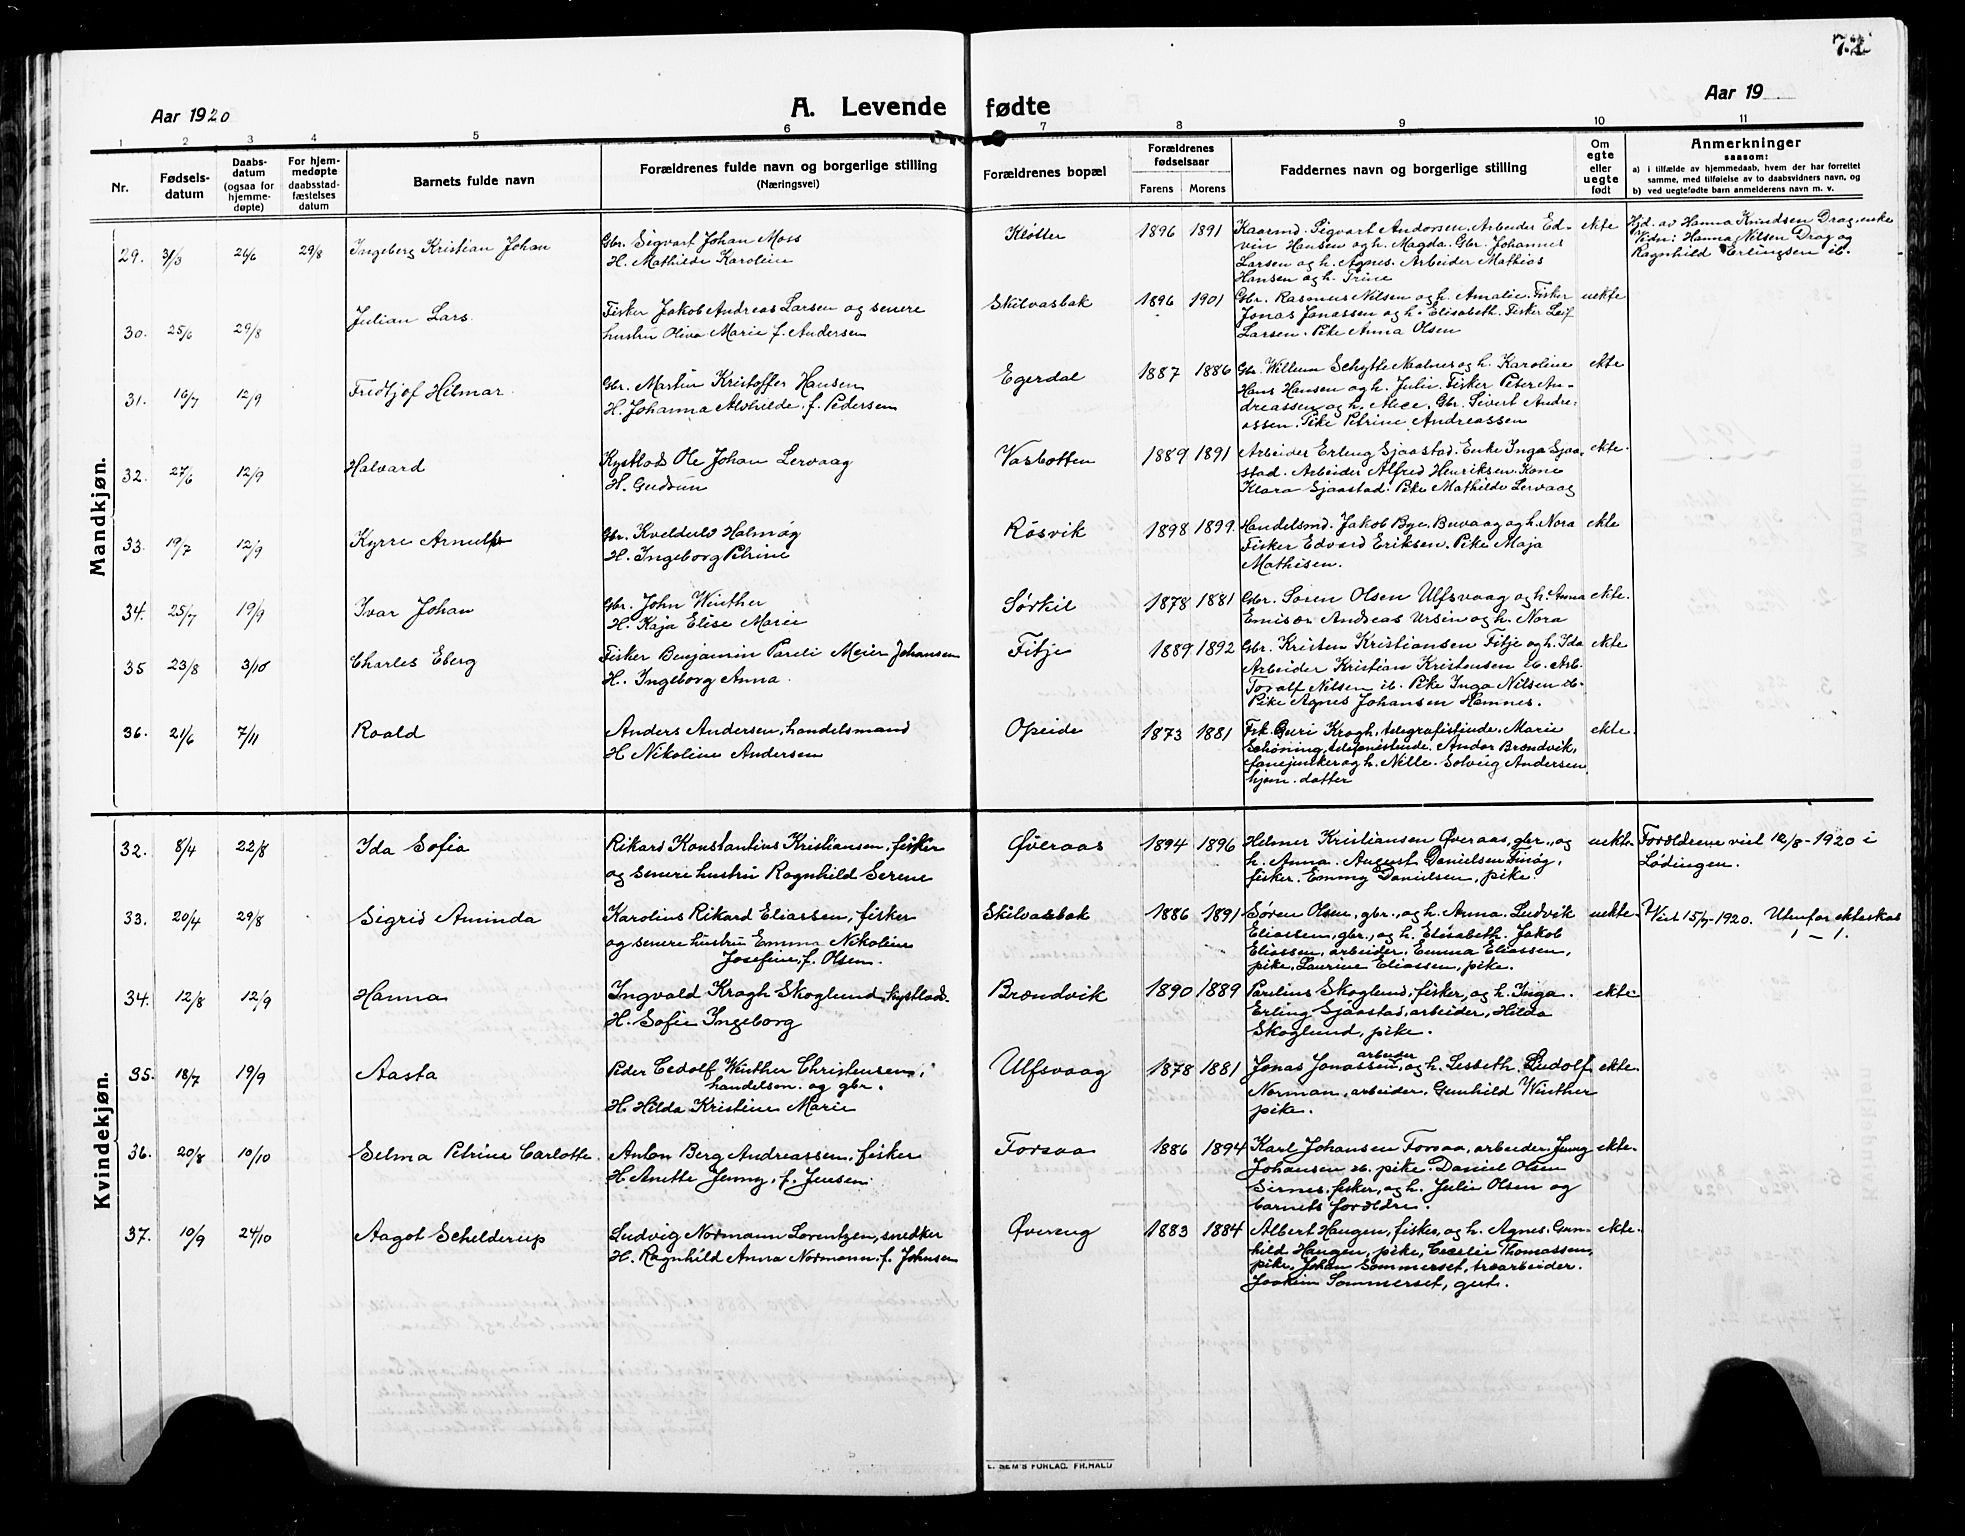 72
Aar 1920
A. Levende fødte
Aar 19
1 2 3 4 5 6 7 8 9 10 11
Nr.
Fødsels-
datum
Daabs-
datum
(ogsaa for
hjemme-
døpte)
For hjem-
medøpte
daabsstad-
fæstelses
datum
Barnets fulde navn
Forældrenes fulde navn og borgerlige stilling
(Næringsvei)
Forældrenes bopæl
Forældrenes
fødselsaar
Farens Morens
Faddernes navn og borgerlige stilling
Om
egte
eller
uegte
født
Anmerkninger
saasom:
a) i tilfælde av hjemmedaab, hvem der har forrettet
samme, med tilføielse av to daabsvidners navn, og
b) ved uegtefødte barn anmelderens navn m. v.
Mandkjøn.
29. 31/3 26/6 29/8 Ingeberg Kristian Johan
Gbr. Sigvart Johan Moss
H. Mathilde Karoline
Kløtter 1896 1891
Kaarmd. Sigvart Andorsen. Arbeider Ed-
vin Hansen og h. Magda. Gbr. Johannes
Larsen og h. Agnes. Arbeider Mathias
Hansen og h. Trine
ekte
Hjd. av Hanna Knudsen Drag, enke
Vidn: Hanna Nilsen Drag og
Ragnhild Erlingsen ib.
30. 25/6 29/8 Julian Lars
Fisker Jakob Andreas Larsen og senere
hustru Oliva Marie f. Andersen
Skilvasbak 1896 1901
Gbr. Rasmus Nilsen og h. Amalie. Fisker
Jonas Jonassen og h. Elisabeth. Fisker Leif
Larsen. Pike Anna Olsen
uekte
31. 16/7 12/9 Fredtjof Hilmar
Gbr. Martin Kristoffer Hansen
H. Johanna Alvhilde f. Pedersen
Egerdal 1887 1886
Gbr. Willum Schytte og h. Karoline
Hans Hansen og h. Julie. Fisker Peter An-
dreassen og h. Alice. Gbr. Sivert Andre-
assen. Pike Petrine Andreassen
ekte
32. 27/6 12/9 Halvard
Kystlods Ole Johan Lervaag
H. Gudrun
Vasbotten 1889 1891
Arbeider Erling Sjaastad. Enke Inga Sjaa-
stad. Arbeider Alfred Henriksen. Kone
Klara Sjaastad. Pike Mathilde Lervaag
ekte.
33. 19/7 12/9 Kyrre Arnulf
Gbr. Kveldulv Halmøy
H. Ingeborg Petrine
Røsvik 1898 1899.
Handelsmd. Jakob Bye, Buvaag og h. Nora
Fisker Edvard Eriksen. Pike Maja
Mathisen.
ekte
34. 25/7 19/9 Ivar Johan
Gbr. John Winther
H. Kaja Elise Marie
Sørkil 1878 1881
Gbr. Søren Olsen Ulfsvaag og h. Anna
Emisær Andreas Ursin og h. Nora
ekte.
35 23/8 3/10 Charles Eberg
Fisker Benjamin Pareli Meier Johansen
H. Ingeborg Anna.
Fitje 1889 1892
Gbr. Kristen Kristiansen Fitje og h. Ida
Arbeider Kristian Kristensen ib. Arb.
Toralf Nilsen ib. Pike Inga Nilsen ib.
Pike Agnes Johansen Hamnes.
ekte
36. 21/6 7/11 Roald
Anders Andersen, handelsmand
H Nikoline Andersen
Opeide 1873 1881
Frk. Guri Krogh, telegrafistinde. Marie
Schøning, telefonistinde. Andor Brændvik,
fanejunker og h. Nille. Solveig Andersen,
hjem. datter
ekte.
Kvindekjøn.
32. 8/4 22/8 Ida Sofia
Rikard Konstantius Kristiansen, fisker
og senere hustru Ragnhild Serene
Øveraas 1894 1896
Helmer Kristiansen Øveraas, gbr., og
h. Anna. August Danielsen Finøy,
fisker. Emmy Danielsen, pike.
uekte
Forældrene viet 12/8-1920 i
Lødingen.
33. 20/4 29/8 Sigrid Aminda
Karolius Rikard Eliassen, fisker
og senere hustru Emma Nikoline
Josefine, f. Olsen.
Skilvasbak 1886 1891
Søren Olsen, gbr., og h. Anna. Ludvik
Eliassen, gbr., og h. Elisabeth. Jakob
Eliassen, arbeider. Emma Eliassen,
pike, Laurine Eliassen, pike.
uekte.
Viet 15/7-1920. Utenfor ekteskab
34. 12/8 12/9 Hanna
Ingvald Krogh Skoglund, kystlods.
H. Sofie Ingeborg
Brændvik 1890 1889
Paulius Skoglund, fisker, og h. Inga.
Erling Sjaastad, arbeider, Hilda
Skoglund, pike.
ekte
35. 18/7 19/9 Aasta
Peder Cedolf Winther Christensen,
handelsm. og gbr.
H. Hilda Kristine Marie
Ulfsvaag 1878 1881
Jonas Jonassen, arbeider og h. Lisbeth. Ludolf
Norman, arbeider. Gunhild Winther
pike.
ekte.
36. 20/8 10/10 Selma Petrine Carlotte.
Anton Berg Andreassen, fisker
H. Anette Jenny, f. Jensen
Forsaa 1886 1894
Karl Johansen Forsaa, arbeider. Jenny
Johansen ib. pike. Daniel Olsen
Sirnes, fisker, og h. Julie Olsen og
barnets forældre.
ekte.
37. 10/9 24/10 Aagot Schelderup
Ludvig Normann Lorentzen, snedker
H. Ragnhild Anna Normann, f. Johnsen
Øvereng 1883 1884
Albert Haugen, fisker, og h. Agnes. Gun-
hild Haugen, pike, Cecilie Thomassen,
pike. Johan Sommerset, træarbeider.
Joakim Sommerset, gut.
ekte.
E. SEM'S FORLAG. FR.HALD